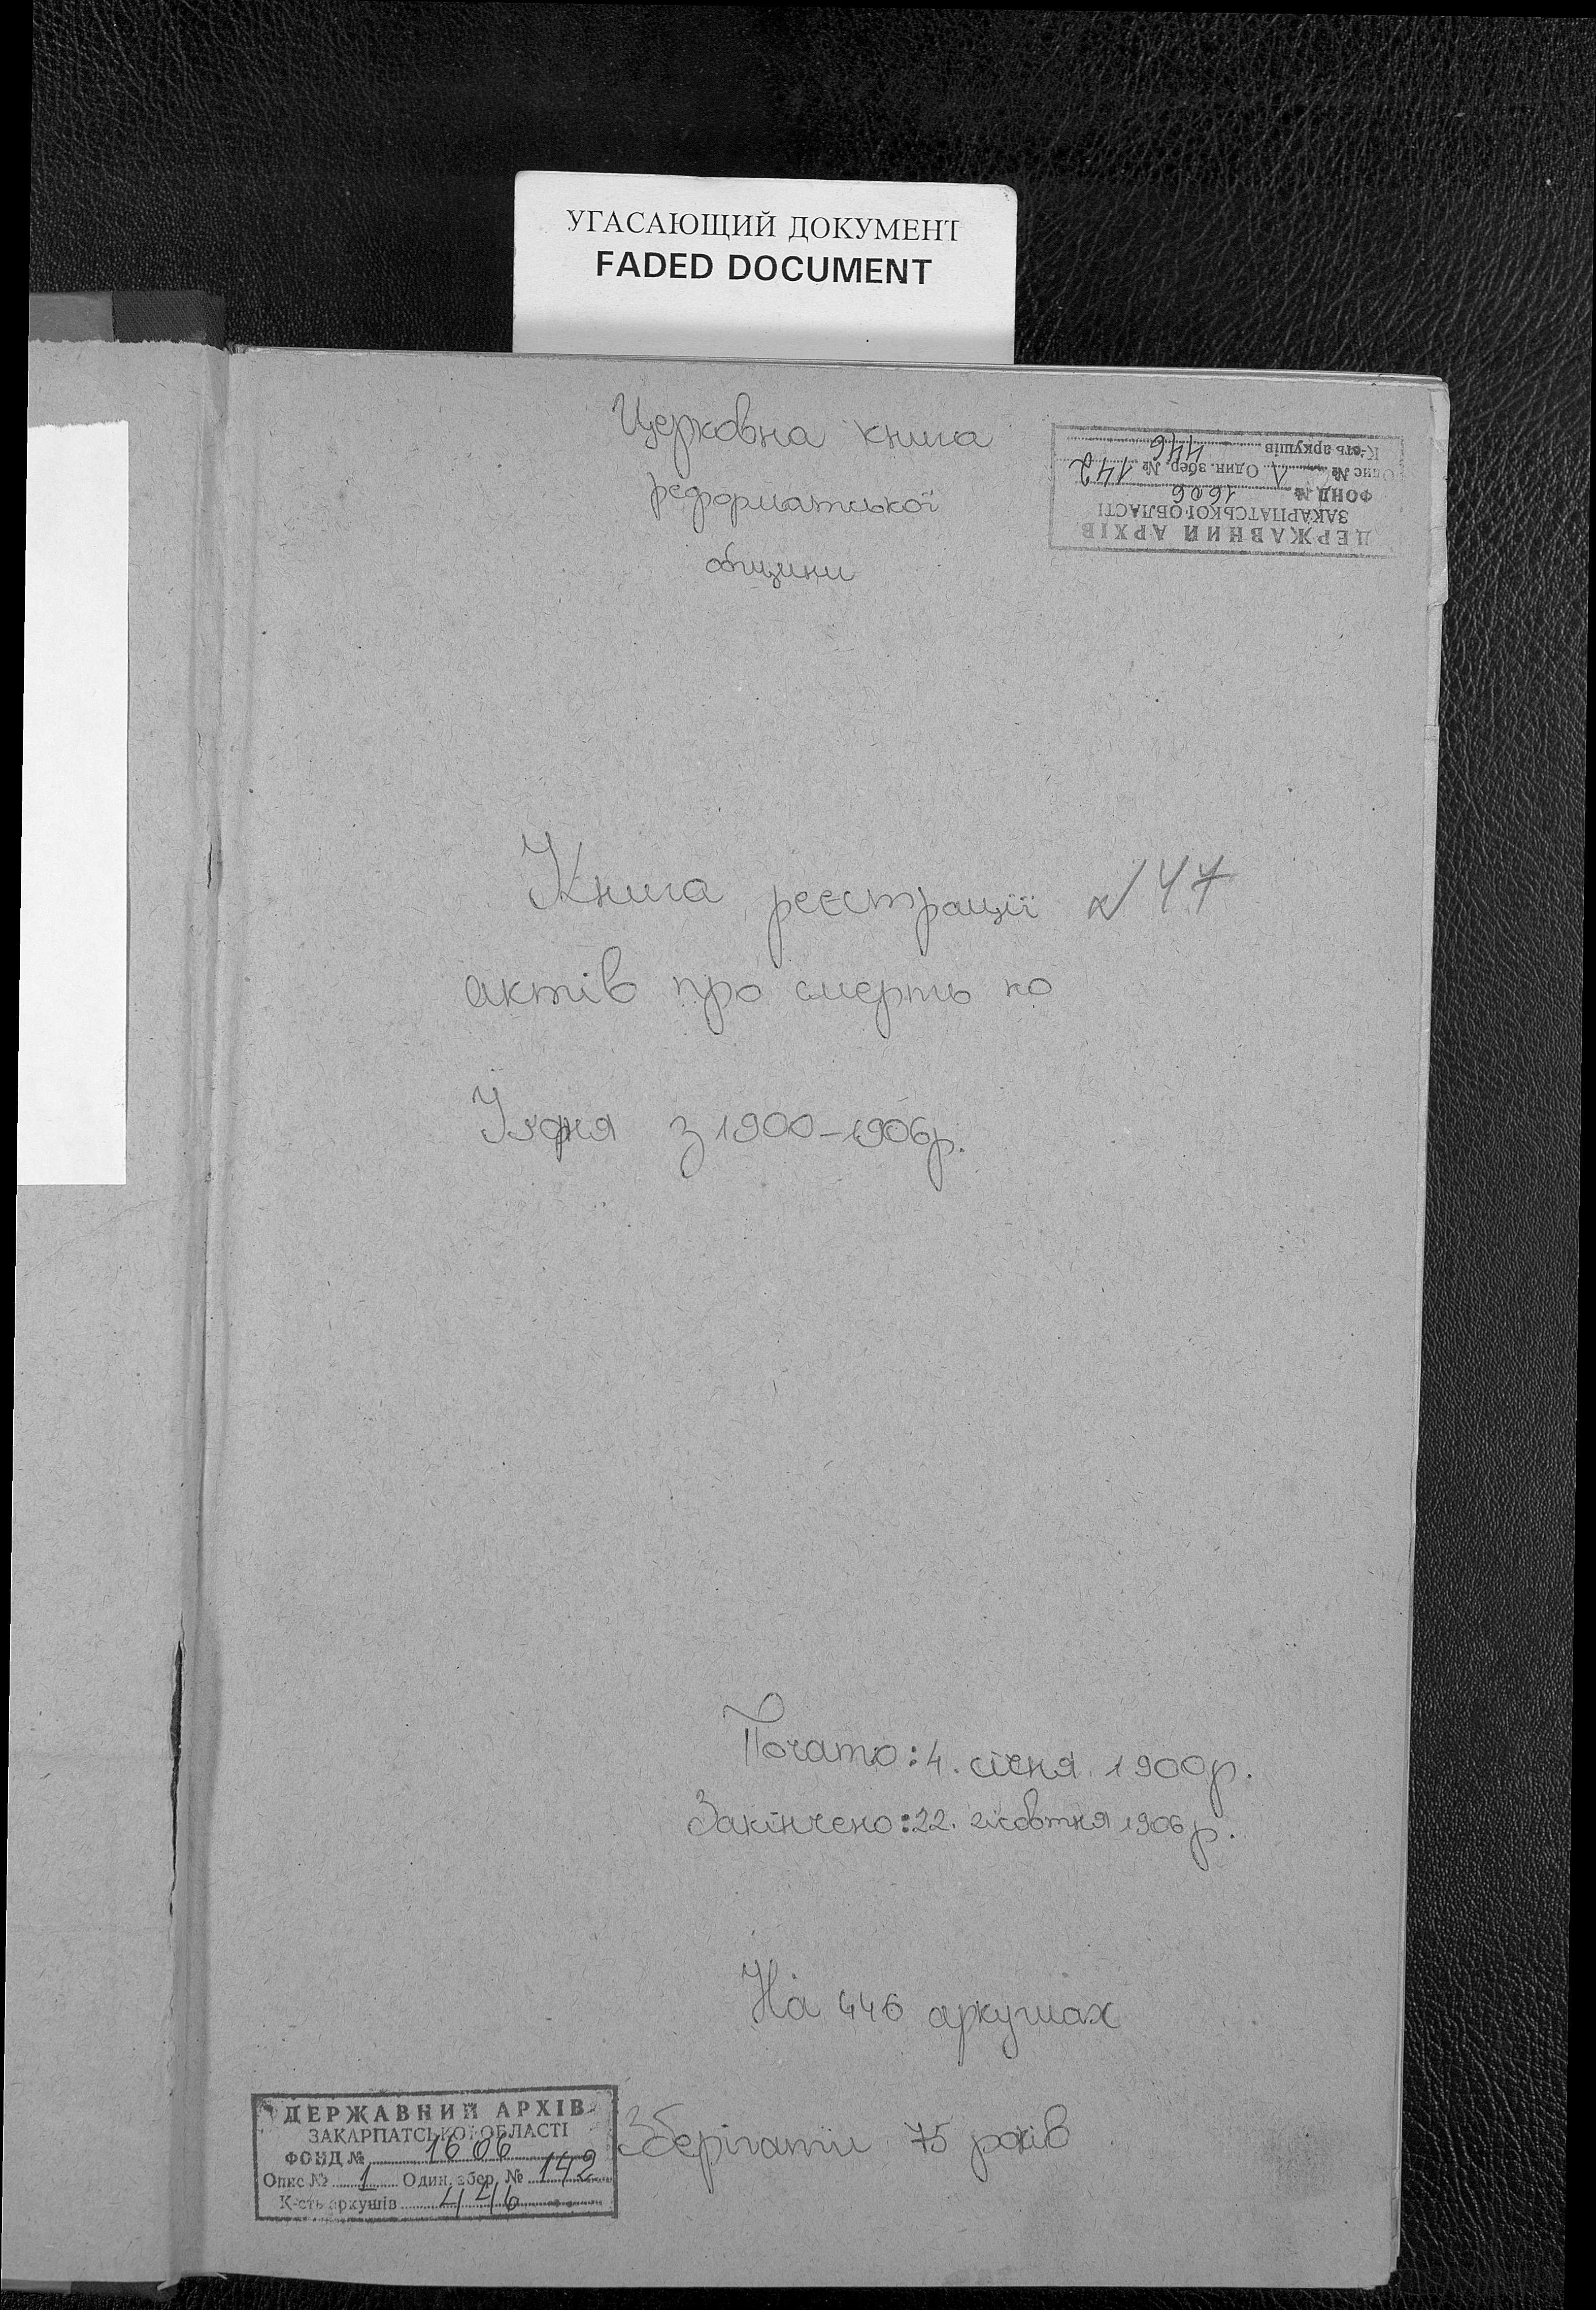 УГАСАЮЩИЙ ДОКУМЕНТ
FADED DOCUMENT
Церковна книга
реформатської
общини
ДЕРЖАВНИЙ АРХІВ
ЗАКАРПАТСЬКОЇ ОБЛАСТІ
ФОНД № 1606
Опис № 1 Один. збер. № 142
К-сть аркушів 446
Книга реєстрації №47
актів про смерть по
з 1900-1906р.
Почато: 4. січня 1900р.
Закінчено: 22. жовтня 1906р.
На 446 аркушах
Зберігати 75 років
ДЕРЖАВНИЙ АРХІВ
ЗАКАРПАТСЬКОЇ ОБЛАСТІ
ФОНД № 1606
Опис № 1 Один. збер. № 142
К-сть аркушів 446